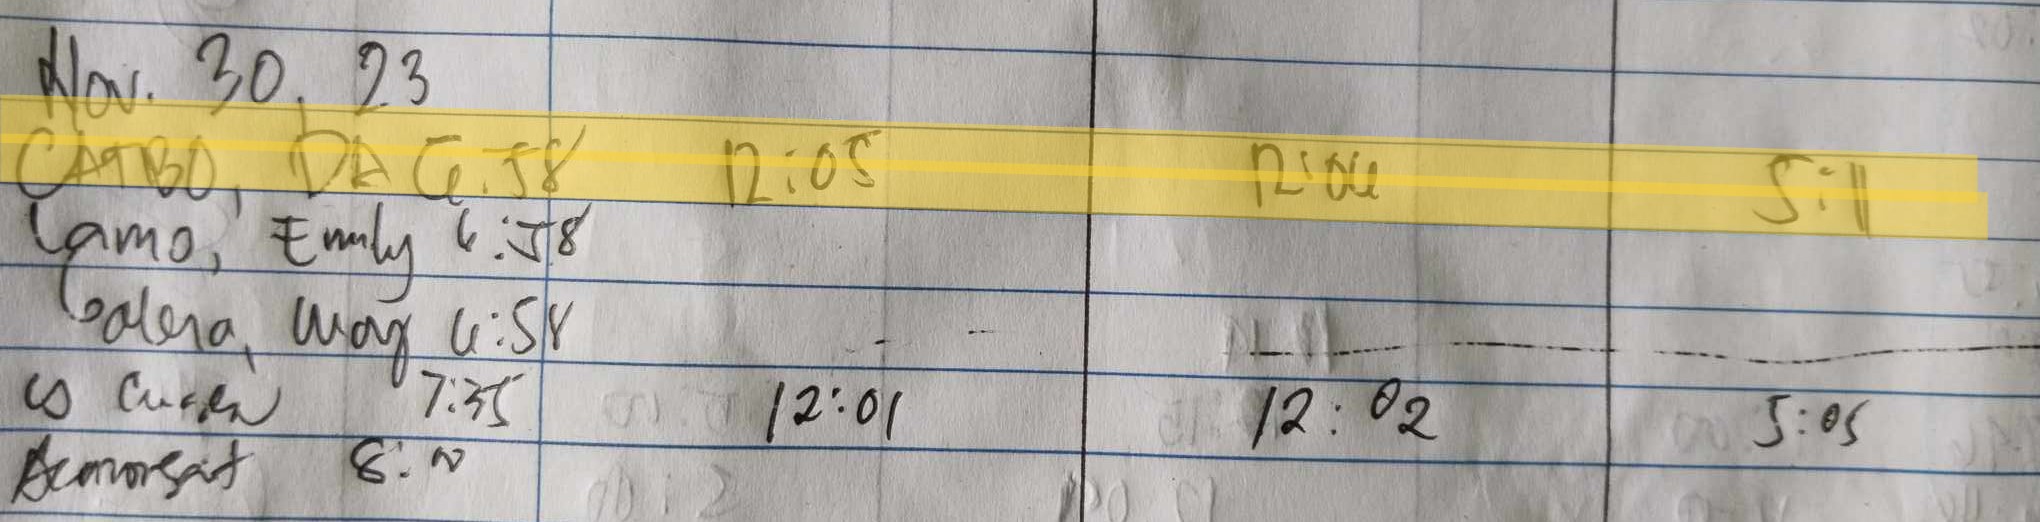 Nov. 30, 23
CATBO, DA 6:58 12:05 12:06 5:11
Camo, Emily 6:58
Galera, May 6:58
7:35 12:01 12:02 5:05